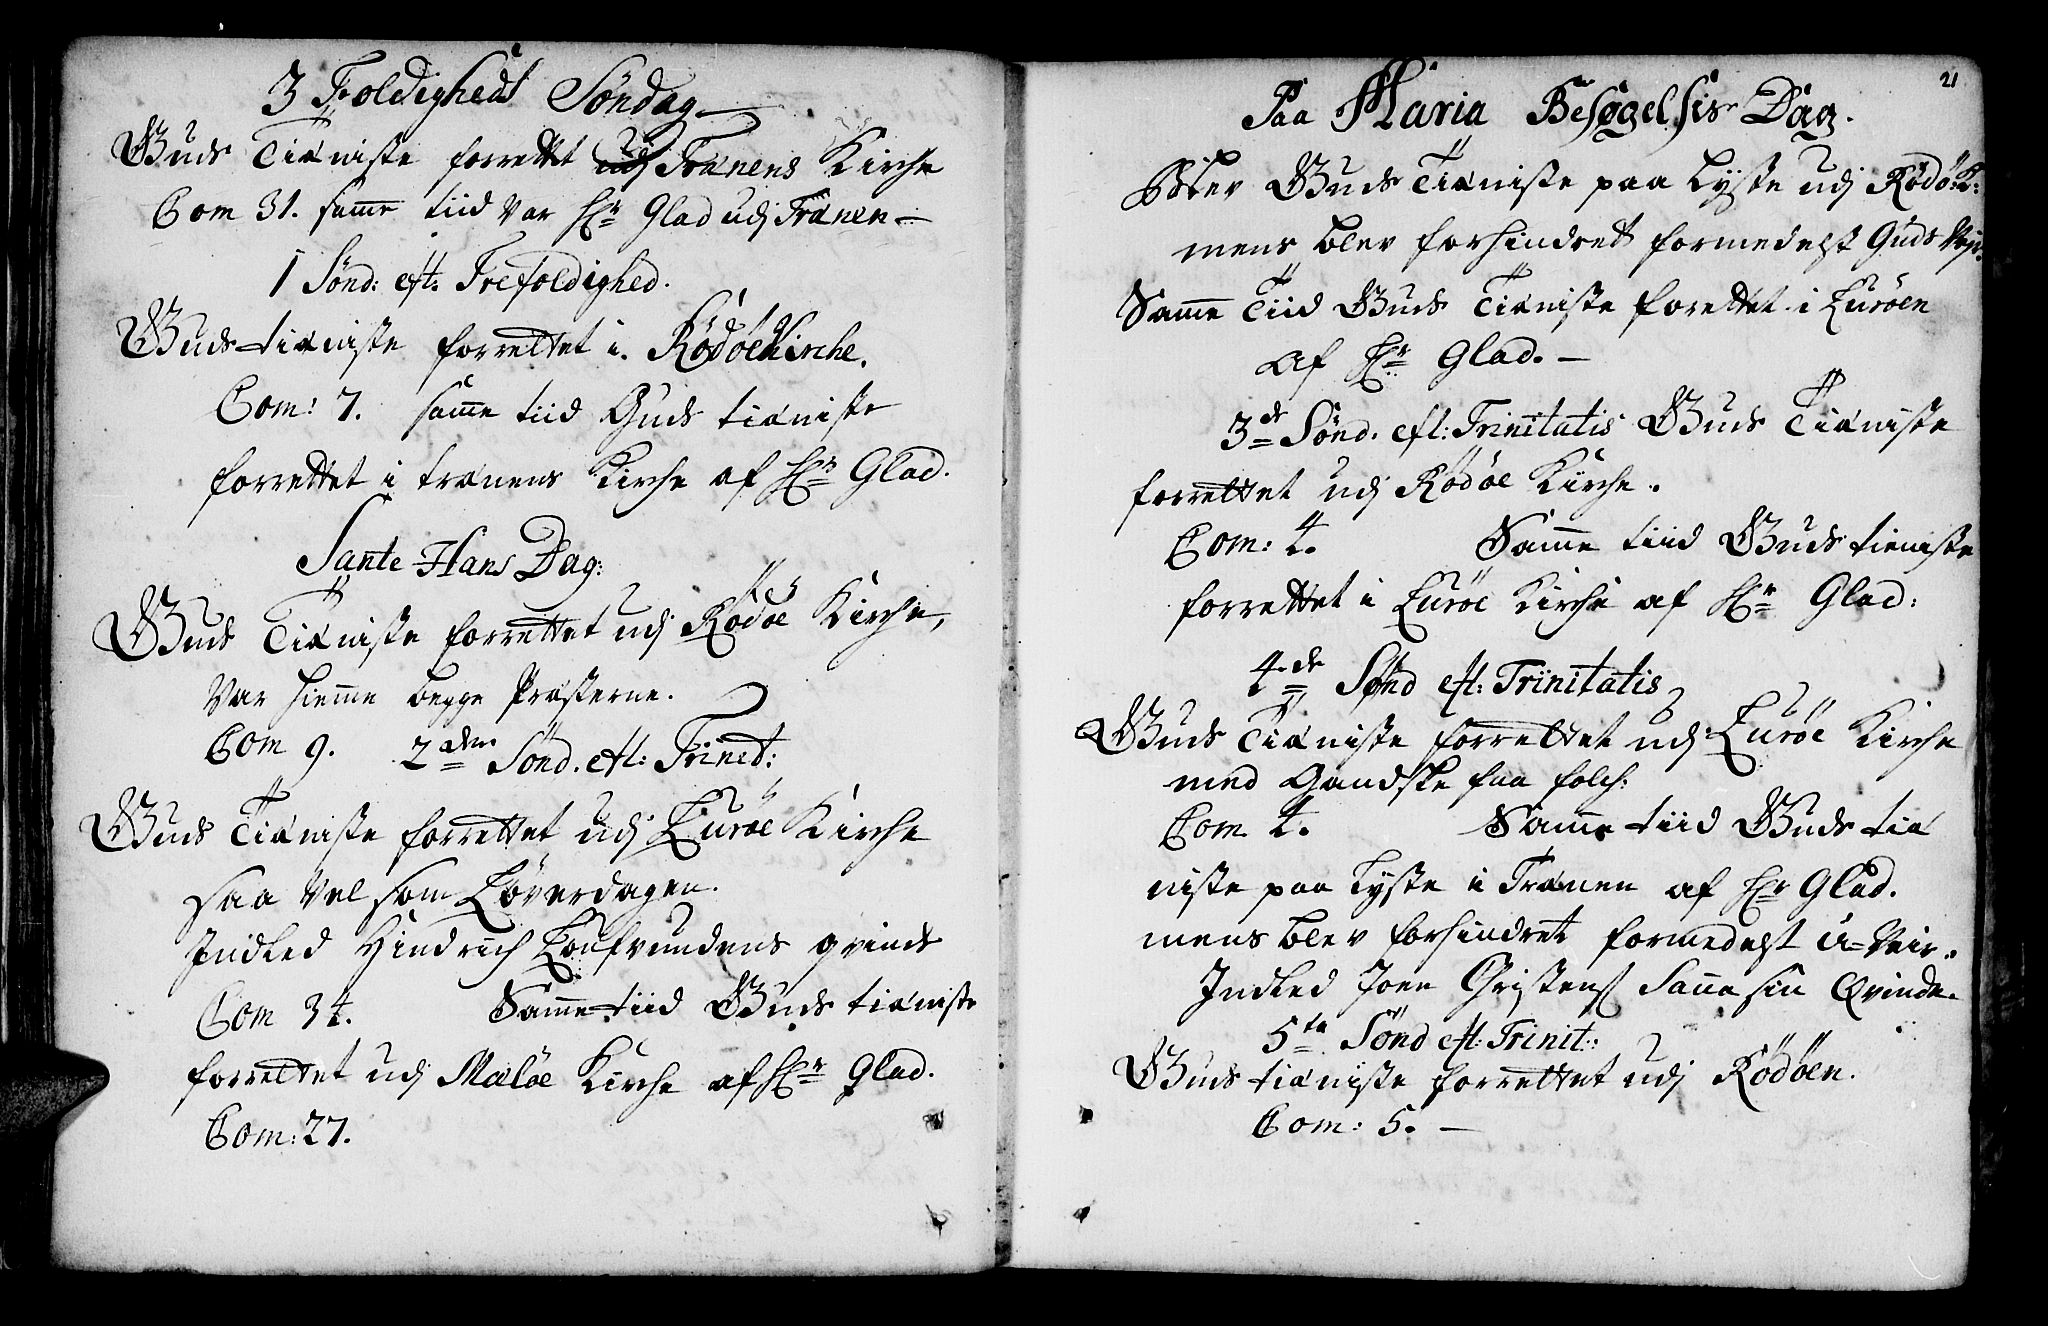 3 Foldigheds Söndag
Guds Tieniste forrettet udj Trænens Kirche
Com 31. samme tiid var Hr Glad udj Trænen
1 Sönd: eft: Trefoldighed.
Guds tieniste forrettet i Rödöe Kirche.
Com: 7. samme tiid Guds tieniste
forrettet i trænens Kirche af Hr Glad.
Sante Hans Dag:
Guds Tieniste forrettet udj Rödöe Kirche,
Var hiemme begge Præsterne.
Com 9. 2den Sönd. eft: Trinit:
Guds Tieniste forrettet udj Luröe Kirche
saa vel som Löverdagen.
Indled Hindrich qvinde
Com 34. Samme tiid Guds tieniste
forrettet udj Melöe Kirche af Hr Glad.
Com: 27.
21
Paa Maria Besøgelsis Dag.
Blev Guds Tieniste paa lyste udj Rödö: K:
mens blev forhindret formedelst Guds Vejr.
Samme Tiid Guds Tieniste forettet i Luröen
af Hr Glad.
3de Sönd. eft: Trinitatis Guds Tieniste
forrettet udj Rödöe Kirche.
Com: 4. Samme tiid Guds tieniste
forrettet i Luröe Kirche af Hr Glad:
4de Sönd eft: Trinitatis
Guds Tieniste forrettet udj Luröe Kirche
med Gandske faa folch:
Com. 4. Samme tiid Guds tie
niste paa lyste i Trænen af Hr Glad.
mens blev forhindret formedelst U-Veir.
Indled Joen Christens Qvinde.
5te Sönd eft: Trinit:
Guds tieniste forrettet udj Rödöen.
Com: 5.